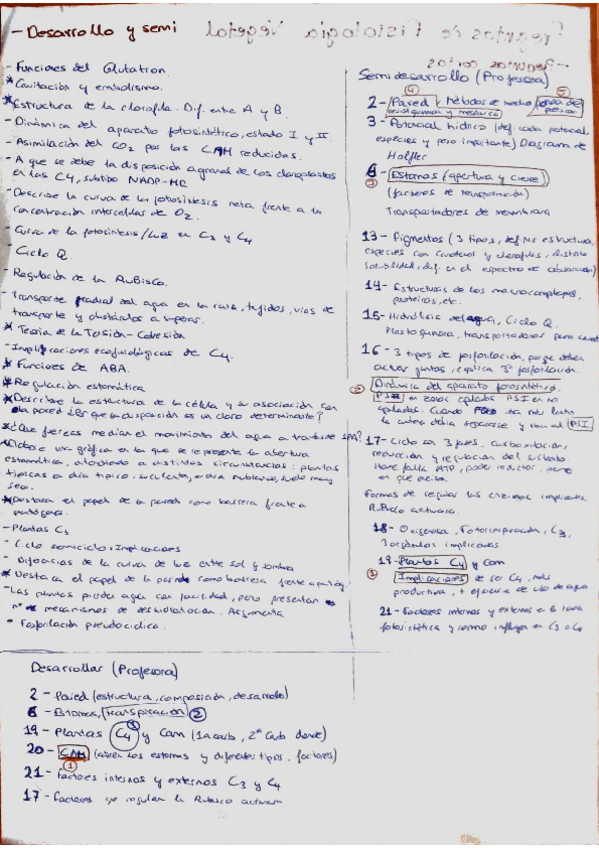 - Desarrollo y semi
- Funciones del Glutatron.
* Cavitación y embolismo.
* Estructura de la clorofila. Dif. entre A y B.
- Dinámica del aparato fotosintético, estado I y II.
- Asimilación del CO2 por las CAM reducidas.
- A que se debe la disposición agranal de los cloroplastos
en las C4, subtipo NADP-ME
- Describe la curva de la fotosíntesis neta frente a la
concentración intercelular de O2.
- Curva de la fotosíntesis/luz en C3 y C4
- Ciclo Q.
- Regulación de la Rubisco.
- Transporte radial del agua en la raíz, tejidos, vías de
transporte y obstáculos a
* Teoría de la Tensión-Cohesión
- Implicaciones ecofisiológicas de C4.
* Funciones de ABA.
* Regulación estomática
* Describe la estructura de la célula y su asociación con
la pared ¿Es que la disposición es un claro determinante?
* ¿Que fuerzas median el movimiento del agua a través SPA?
* Elabora una gráfica en la que se represente la abertura
estomática, atendiendo a distintas circunstancias: plantas
típicas a día típico, suculenta, a día nublado, suelo muy
seco.
* Destaca el papel de la pared como barrera frente a
patógenos.
- Plantas C3
- Ciclo semiciclo: Implicaciones
- Diferencias de la curva de luz entre sol y sombra
* Destaca el papel de la pared como barrera frente a patóg.
- Las plantas pierden agua con facilidad, pero presentan
mecanismos de deshidratación. Argumenta
- Fosforilación pseudocíclica.
Preguntas de Fisiología Vegetal
- Preguntas cortas
Semidesarrollo (Profesora)
④ ⑤
2- Pared, Métodos de medir
3- Potencial hídrico (def. cada potencial,
especies y pero importante) Diagrama de
Höfler
6- Estomas (apertura y cierre)
③ (factores de transpiración)
Transportadores de membrana
13- Pigmentos (3 tipos, def
especies con carotenos y clorofilas, distinta
solubilidad, dif. en el espectro de absorción)
14- Estructuras de los macrocomplejos,
proteínas, etc.
15- Hidrólisis del agua, Ciclo Q.
Plastoquinona, transportador
16- 3 tipos de fosforilación, porque deben
actuar juntas, explica 3ª fosforilación.
Dinámica del aparato fotosintético.
PSII en zonas apiladas PSI en no
apiladas. Cuando
la antena debía separarse y iba al PSI
17- Ciclo en 3 fases. Carboxilación,
reducción y regulación del sustrato.
Hace falta ATP, poder reductor, pero
en que activa.
Formas de regular las enzimas implicadas.
Rubisco activasa.
18- Oxigenasa, Fotorrespiración, C3,
3 orgánulos implicados
19- Plantas C4 y Cam
① Implicaciones de ser C4, más
productiva, + eficacia de uso de agua
21- Factores internos y externos en la tasa
fotosintética y como influye en C3 o C4
Desarrollar (Profesora)
2- Pared (estructura, composición, desarrollo)
6- Estomas, transpiración ②
19- Plantas C4 y Cam (1ª carb, 2ª carb donde) ③
20- CAM (abren los estomas y diferentes tipos, factores)
①
21- Factores internos y externos C3 y C4
17- Factores que regulan la Rubisco activasa